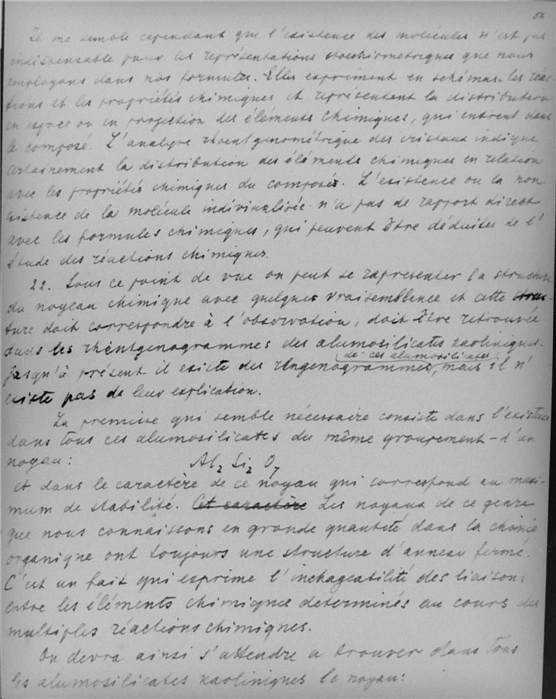 54
Il me semble cependant que l'existence des molécules n'est pas
indispensable pour les représentations stoechiométriques que nous
employons dans nos formules. Elles expriment en schémas les réac-
tions et les propriétés chimiques et représentent la distribution
en espace ou en projection des éléments chimiques, qui entrent dans
le composé. L'analyse rhoentgenométrique des cristaux indique
certainement la distribution des éléments chimiques en relation
avec les propriétés chimiques du composé. L'existence ou la non
existence de la molécule individualisée n'a pas de rapport direct
avec les formules chimiques, qui peuvent être déduites de l'
étude des réactions chimiques.
22. Sous ce point de vue on peut se rapresenter la structure
du noyau chimique avec quelque vraisemblence et cette struc-
ture doit correspondre à l'observation, doit être retrouvée
dans les rhéntgenogrammes des alumosilicates kaoliniques.
Jusqu'à présent il existe des rengenogrammes de ces alumosilicates, mais il n'
existe pas de leur explication.
La premisse qui semble nécessaire consiste dans l'existence
dans tous ces alumosilicates du même groupement – d'un
noyau:
Al2 Si2 O7
et dans le caractère de ce noyau qui correspond au maxi-
mum de stabilité. Cet caractère Les noyaux de ce genre
que nous connaissons en grande quantité dans la chimie
organique ont toujours une structure d'anneau fermé.
C'est un fait qui exprime l'inchageabilité des liaisons
entre les éléments chimiques determinés au cours des
multiples réactions chimiques.
On devra ainsi s'attendre a trouver dans tous
les alumosilicates kaoliniques le noyau: